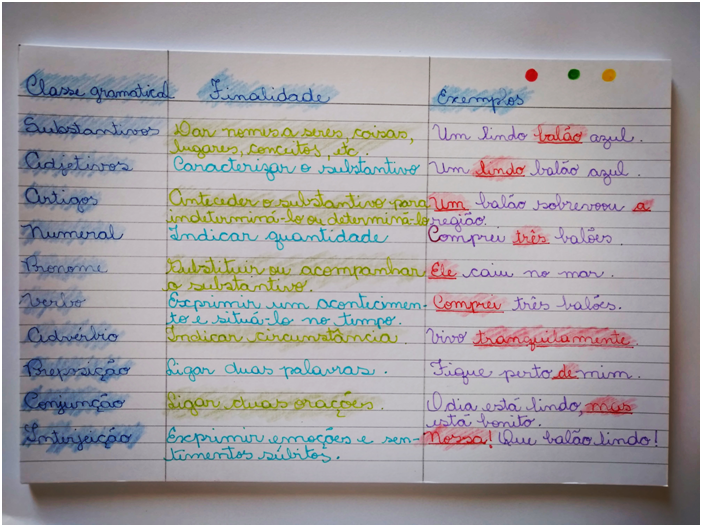 Classe gramatical Finalidade Exemplos
Substantivos Dar nomes a seres, coisas, Um lindo balão azul.
lugares, conceitos, etc.
Adjetivos Caracterizar o substantivo Um lindo balão azul.
Artigos Anteceder o substantivo para Um balão sobrevoou a
indeterminá-lo ou determiná-lo região.
Numeral Indicar quantidade Comprei três balões.
Pronome Substituir ou acompanhar Ele caiu no mar.
o substantivo.
Verbo Exprimir um acontecimen- Comprei três balões.
to e situá-lo no tempo.
Advérbio Indicar circunstância Vivo tranquidamente
Preposição Ligar duas palavras. Fique perto de mim.
Conjunção Ligar duas orações. O dia está lindo, mas
está bonito.
Interjeição Exprimir emoções e sen- Nossa! Que balão lindo!
timentos súbitos.